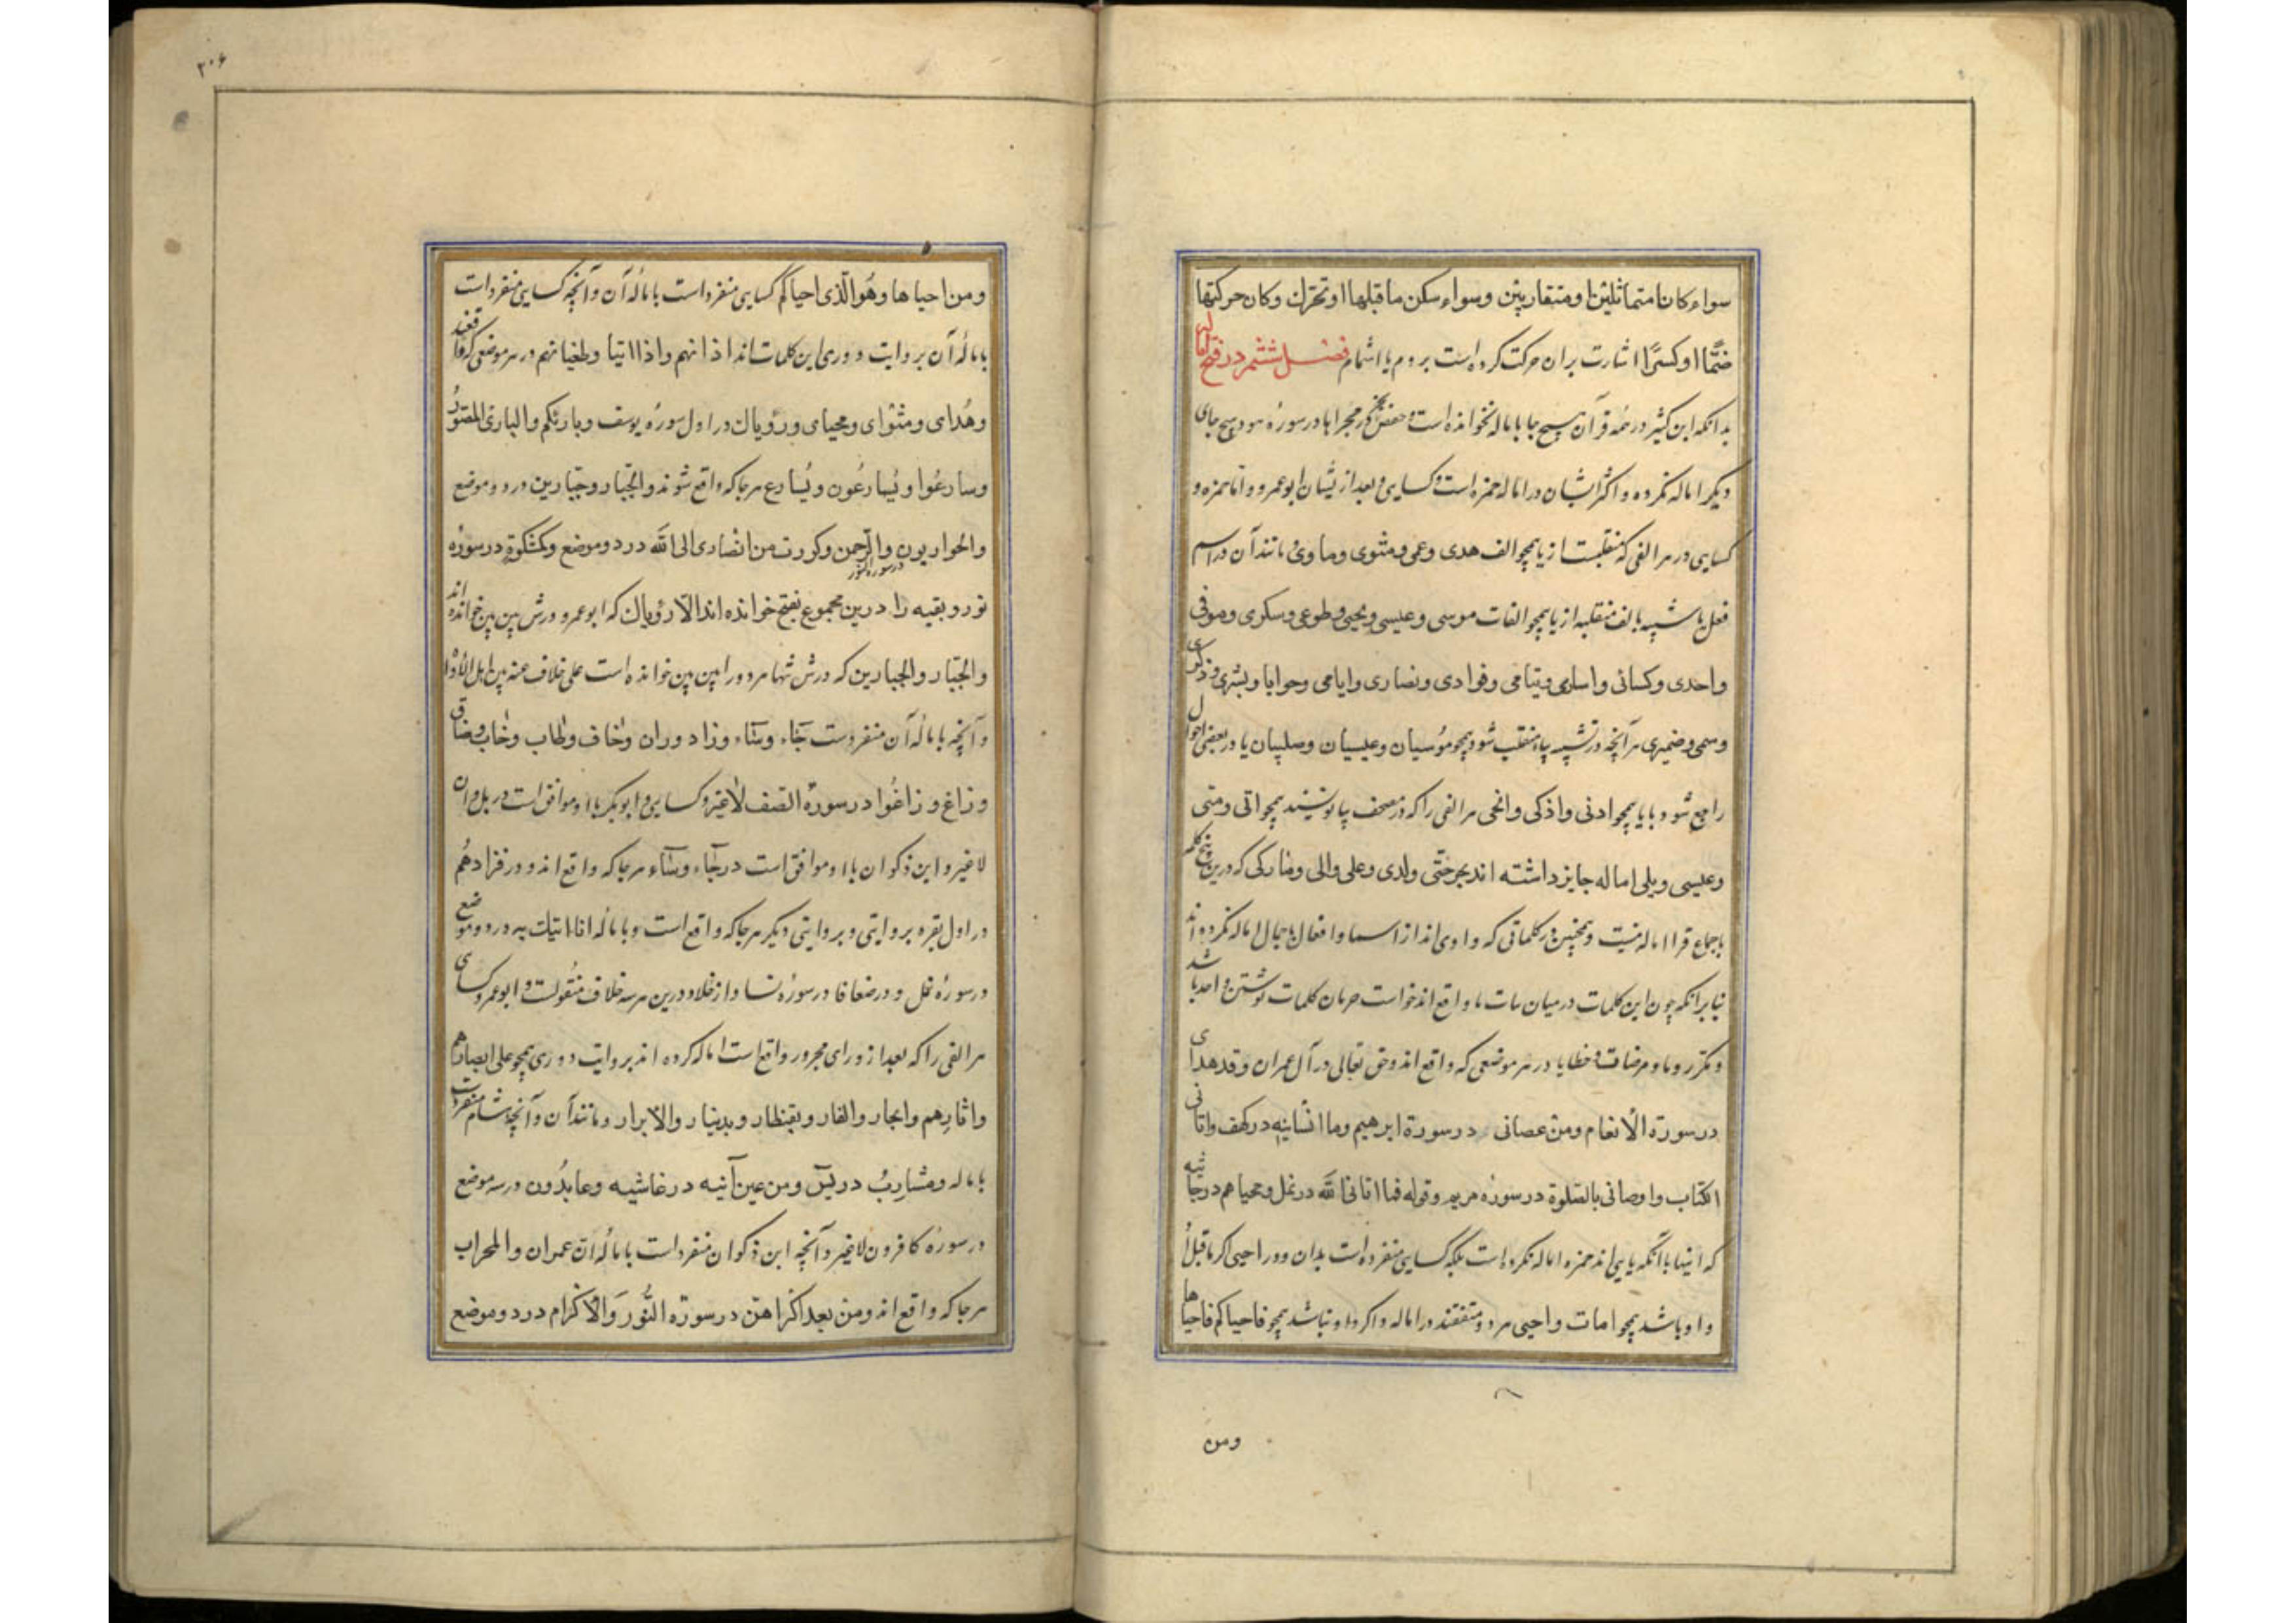 سواء کان متماثلین او متقاربین وسواء سکن ما قبلها او تحرک وکان حرکتها
ضمًّا او کسرًا اشارت بران حرکت کرده است بروم یا اشمام فصل ششم در فتح و اماله
بدانکه ابن کثیر در همه قرآن هیچ جا باماله نخوانده است و حفص بجز در مجراها در سورهٔ هود هیچ جای
دیگر اماله نکرده و اکثر ایشان در اماله حمزه است و کسایی و بعد از یشان ابو عمرو و اما حمزه و
کسایی در هر الفی که منقلبست از یا همچو الف هدی وعمی ومثوی وماوی و مانند آن در اسم
فعل یا شبیه بالف منقلبه از یا همچو الفات موسی وعیسی ویحیی وطوبی وسکری وموتی
واحدی وکسالی واساری ویتامی وفرادی ونصاری وایامی وحوایا وبشری وذکری
وسمی وضیزی هر آنچه در تثنیه بیا منقلب شود همچو موسیان وعیسیان وصلیان یا در بعضی احوال
راجع شود با یا همچو ادنی واذکی وانجی هر الفی را که در مصحف بیا نویسند همچو اتی ومتی
وعیسی وبلی اماله جایز داشته اند بجز حتّی ولدی وعلی والی وما زکی که درین پنج کلمه
باجماع قرا اماله نیست و همچنین در کلماتی که واوی اند از اسما و افعال باجمال اماله نکرده اند
بنابرانکه چون این کلمات در میان واقع اند خواست کلمات نوشتن و احد باشد
و مکرر و ما ومرضات وخطایا در هر موضعی که واقع اند وحق تعالی در آل عمران وقد هدای
در سورة الانعام ومن عصانی در سورة ابرهیم وما انسانیه در کهف واتانی
الکتاب واوصانی بالصّلوة در سورهٔ مریم وقوله فما اتانی الله در نمل ومحیاهم در جاثیه
که اینها با آنکه یایی اند حمزه اماله نکرده است بلکه کسایی منفرد است بدان و در احیی اگر ما قبل او
واو باشد همچو امات واحیی هر دو متفقند در اماله و اکر واو نباشد همچو فاحیاکم فاحیاها
ومن
۲۰۶
ومن احیاها وهو الّذی احیاکم کسایی منفرد است بامالهٔ آن و آنچه کسایی منفرد است
بامالهٔ آن بروایت دوری این کلمات اند اذانهم واذاننا وطغیانهم در هر موضعی که واقعند
وهُدای ومثوای ومحیای ورؤیاک در اول سورهٔ یوسف وبارئکم والباری المصوّر
وسارعُوا ویُسارعُون ویُسارع هر جا که واقع شوند والجبّار وجبّارین در دو موضع
والحواریون والرحمن وکورت من انصاری الی الله در دو موضع وکمشکوة در سورهٔ
در سورة النور
نور و بقیه را درین مجموع بفتح خوانده اند الا رؤیاک که ابو عمرو و ورش بین بین خوانده اند
والجبّار والجبارین که ورش تنها هر دو را بین بین خوانده است علی خلاف عنه بین اهل الاداء
و آنچه بامالهٔ آن منفردست جاء وشاء وزاد وران وخاف وطاب وخاب وضاق
وزاغ وزاغُوا در سورهٔ الصف لاغیر و کسایی و ابو بکر با او موافق است در بل ران
لاغیر و ابن ذکوان با او موافق است در جاء وشاء هر جا که واقع اند و در فزادهُم
در اول بقره بروایتی و بروایتی دیکر هر جا که واقع است و بامالهٔ انا اتیک به در دو موضع
در سورهٔ نمل و در ضعافا در سورهٔ نسا و از خلاد درین هر سه خلاف منقولست و ابو عمرو و کسای
هر الفی را که بعد از و رای مجرور واقع است اماله کرده اند بروایت دوری همچو علی ابصارهم
واثارهم والنار والغار وبقنطار وبدینار والابرار و مانند آن و آنچه هشام منفردست
باماله ومشاربُ در یٰس ومن عین آنیه در غاشیه وعابدُون در سه موضع
در سورهٔ کافرون لاغیر و آنچه ابن ذکوان منفرد است بامالهٔ آن عمران والمحراب
هر جا که واقع اند ومن بعد اکراههن در سورة النُّور والاکرام در دو موضع